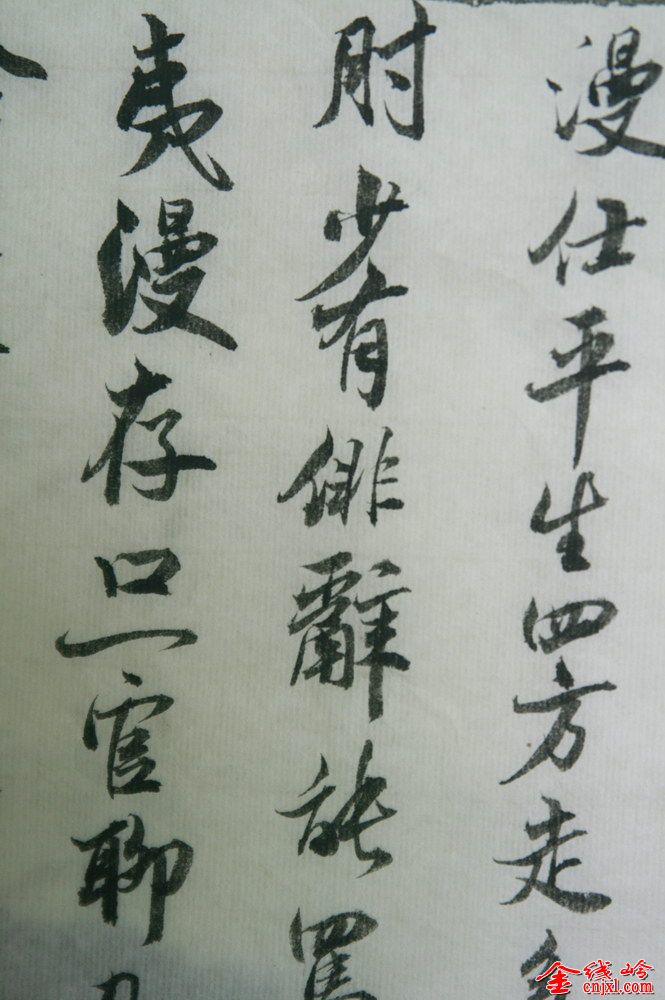 漫仕平生四方走
肘少有俳辭能罵
夷漫存口一官聊
金线岭
cnjxl.com